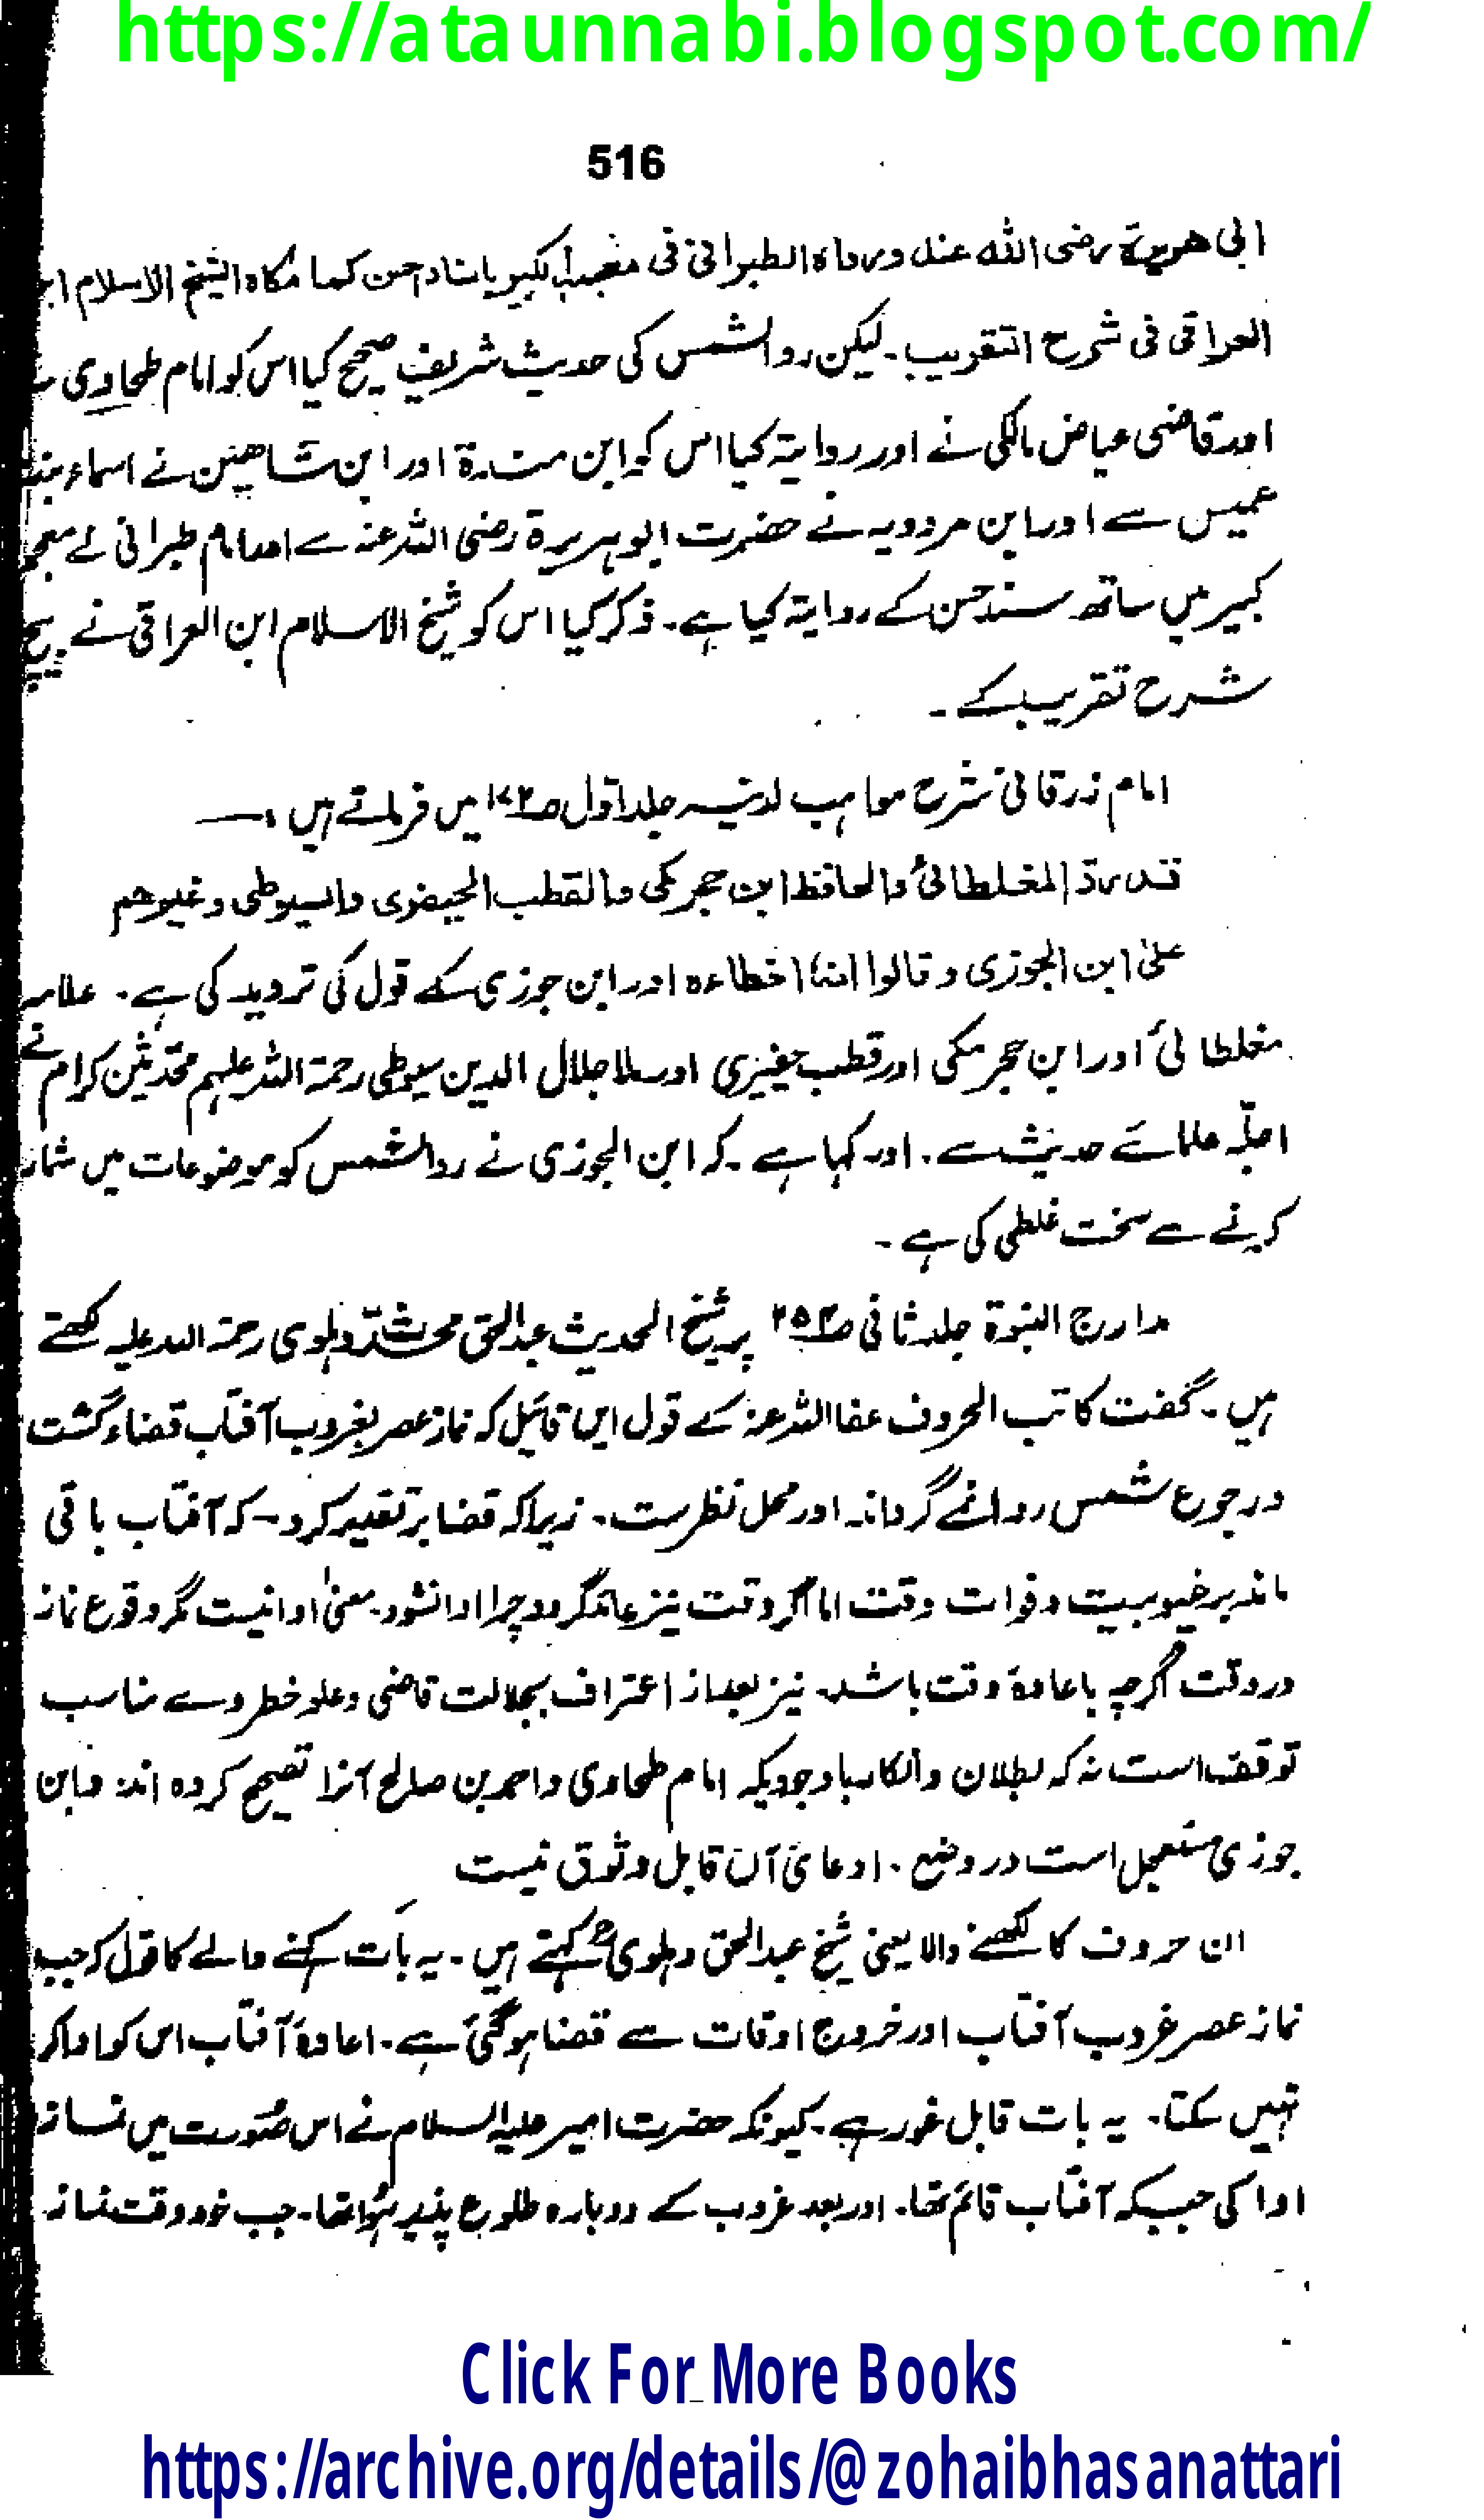 https://ataunnabi.blogspot.com/
516
ابی هریرة رضی الله عنه ورواه الطبرانی فی معجمه الکبیر باسناد حسن کما حکاه الشیخ الاسلام ابن
العراقی فی شرح التقریب۔ لیکن رد الشمس کی حدیث شریف صحیح کیا اس کو امام طحاوی نے
اور قاضی عیاض مالکی نے اور روایۃ کیا اس کو ابن مندۃ اور ابن شاھین نے اسماء بنت
عمیس سے اور ابن مردویہ نے حضرت ابو ہریرۃ رضی اللہ عنہ سے اور امام طبرانی نے معجم
کبیر میں ساتھ سند حسن کے روایۃ کیا ہے۔ ذکر کیا اس کو شیخ الاسلام ابن العراقی نے بیچ
شرح تقریب کے۔
امام زرقانی شرح مواہب لدنیہ جلد اوّل میں فرماتے ہیں :—
قد رد المغلطائی والحافظ ابن حجر مکی والقطب الحیضری والسیوطی وغیرهم
علیٰ ابن الجوزی وقالوا انه اخطاءه اور ابن جوزی کے قول کی تردید کی ہے۔ علامہ
مغلطائی اور ابن حجر مکی اور قطب حیفیزی اور ملا جلال الدین سیوطی رحمۃ اللہ علیہم محدّثین کرام نے
اجلّہ علمائے حدیث سے۔ اور کہا ہے۔ کہ ابن الجوزی نے رد الشمس کو موضوعات میں شمار
کرنے سے سخت غلطی کی ہے۔
مدارج النبوۃ جلد ثانی ص۲۵۴ پر شیخ المحدیث عبد الحق محدّث دہلوی رحمۃ اللہ علیہ لکھتے
ہیں۔ گفت کاتب الحروف عفا اللہ عنہ کے قول ایں قائیل کہ نماز عصر بغروب آفتاب قضاء گشت
ورجوع شمس روا نمے گرداند اور محل نظر ست۔ زیراکہ قضا بر تقدیر کرد۔ کہ آفتاب باقی
ماند بر غیوبیت وفوات وقت اما اگر وقت نیز عائد گردد چرا ادا نشود۔ معنیٰ ادا نیست مگر وقوع نماز
در وقت اگرچہ باعادۂ وقت باشد۔ نیز بعد از اعتراف بجلالت قاضی وعلو خطر وے مناسب
توقف است نہ کہ بطلان وانکار باوجودیکہ امام طحاوی واحمد بن صالح آنرا تصحیح کردہ اند وابن
جوزی مستعجل است در وضع۔ ادعائ آن قابل وثوق نیست
ان حروف کا لکھنے والا یعنی شیخ عبد الحق دہلویؒ کہتے ہیں۔ یہ بات کہنے والے کا قول کہ جب
نماز عصر غروب آفتاب اور خروج اوقات سے قضا ہو گئی ہے۔ اعادۂ آفتاب اس کو ادا کر
نہیں سکتا۔ یہ بات قابل غور ہے۔ کیونکہ حضرت امیر علیہ السلام نے اس صورت میں نماز
ادا کی جبکہ آفتاب قائم تھا۔ اور بعد غروب کے دوبارہ طلوع پذیر ہوا تھا۔ جب خود وقت نماز
Click For More Books
https://archive.org/details/@zohaibhasanattari